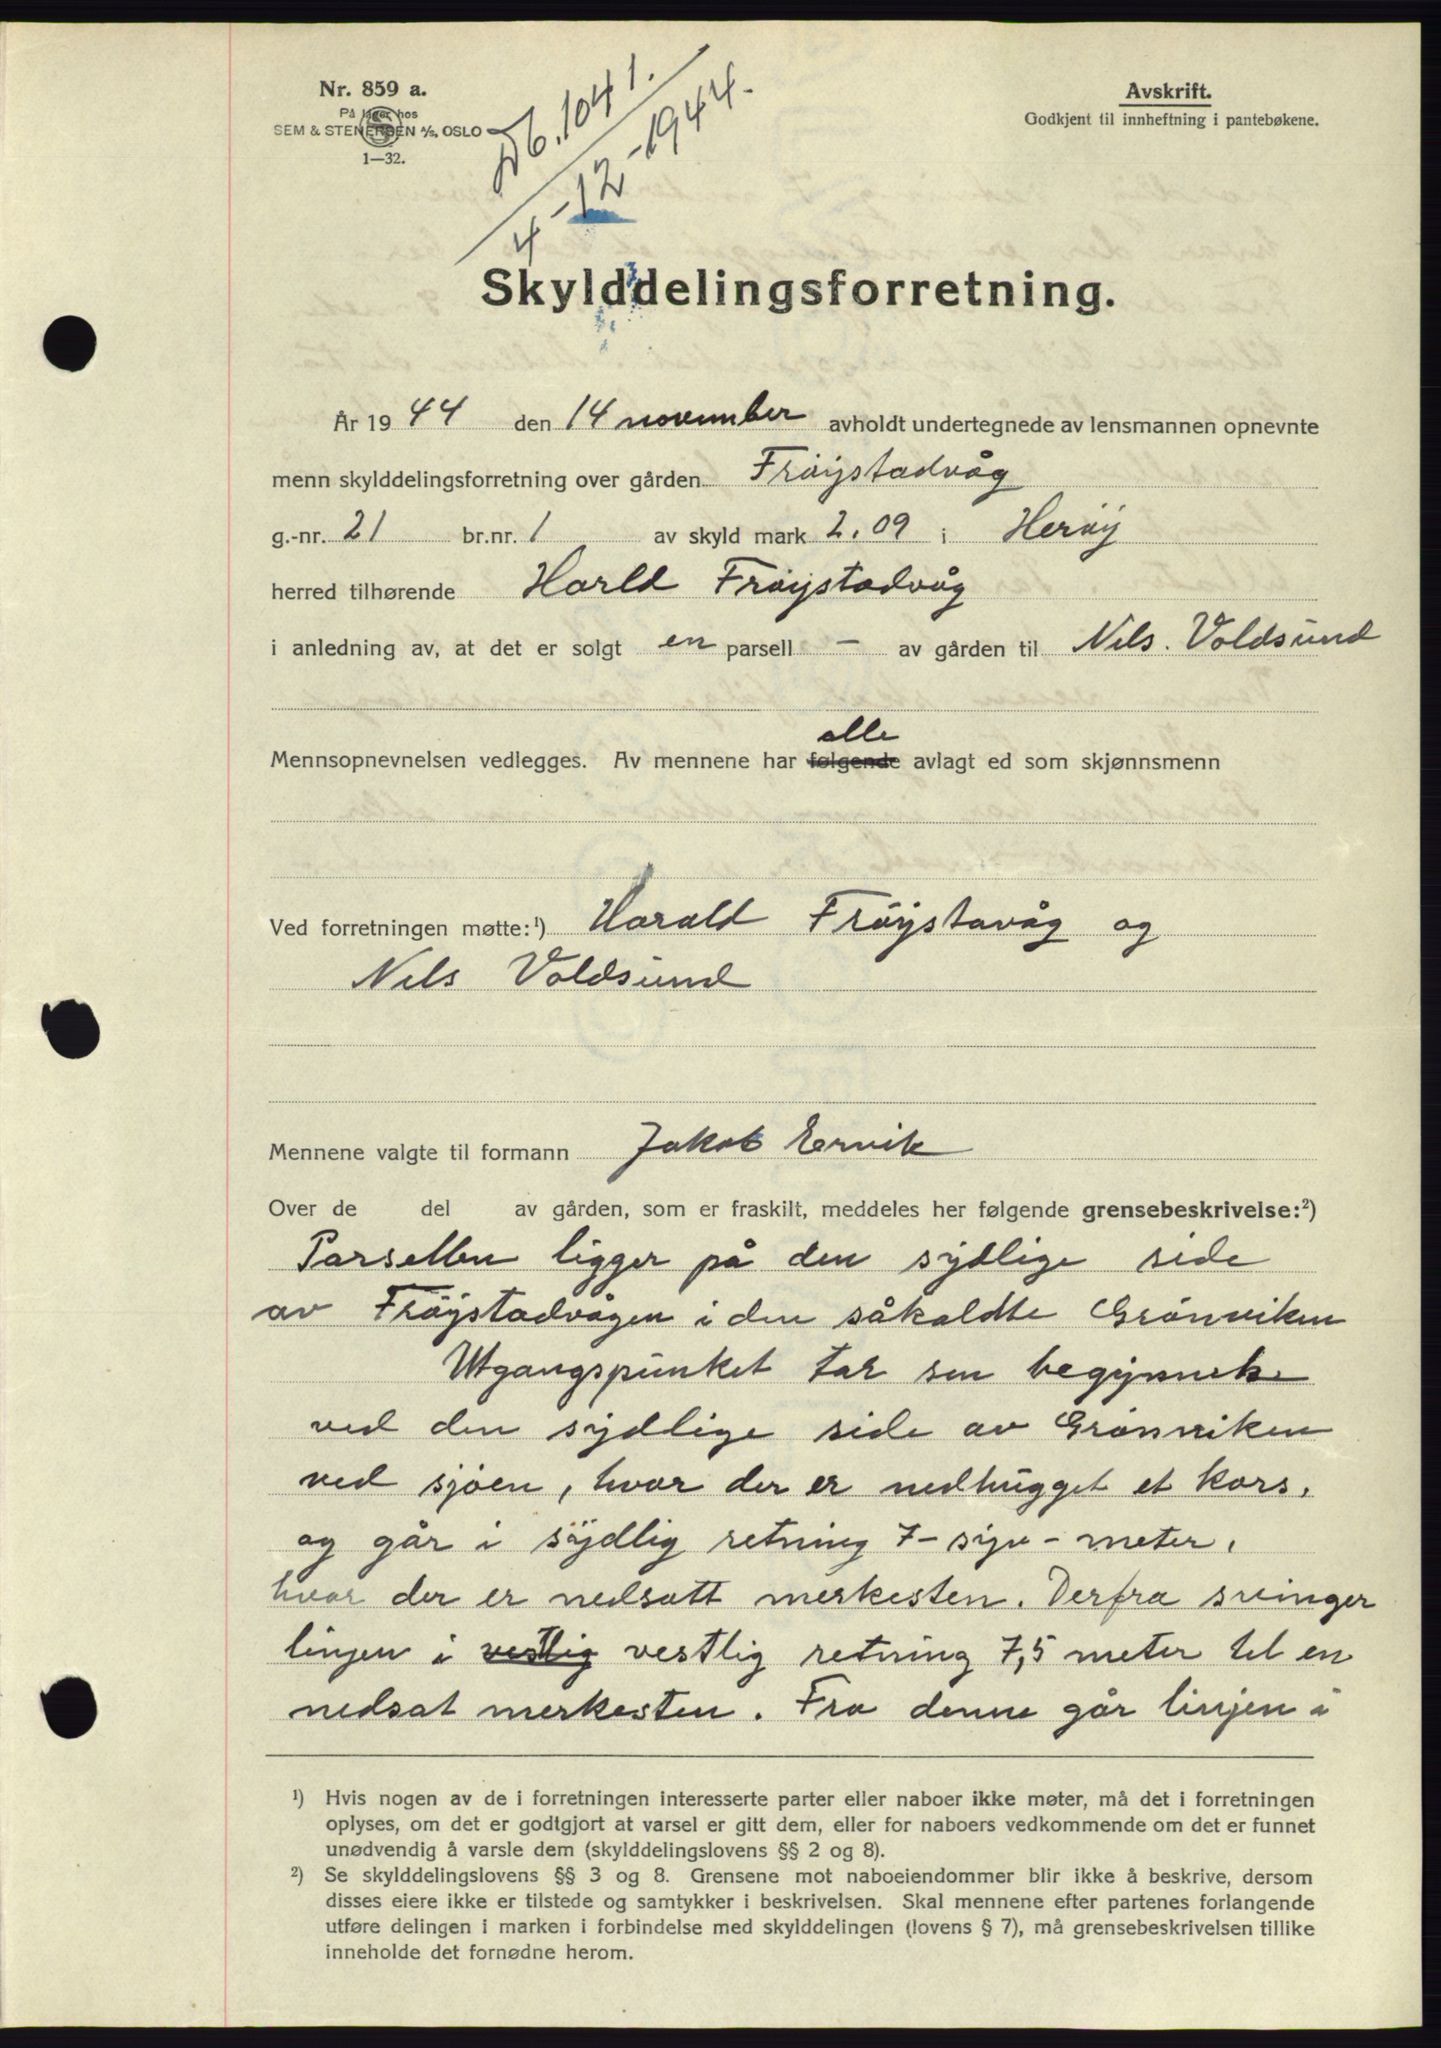 Nr. 859 a.
På lager hos
SEM & STENERSEN A/S, OSLO
1—32.
Db. 1041.
4-12-1944.
Avskrift.
Godkjent til innheftning i pantebøkene.
Skylddelingsforretning.
År 1944 den 14 november avholdt undertegnede av lensmannen opnevnte
menn skylddelingsforretning over gården Frøystadvåg
g.-nr. 21 br.nr. 1 av skyld mark 2.09 i Herøy
herred tilhørende Harld Frøystadvåg
i anledning av, at det er solgt en parsell - av gården til Nils. Voldsund
alle
Mennsopnevnelsen vedlegges. Av mennene har følgende avlagt ed som skjønnsmenn
Ved forretningen møtte:¹) Harald Frøystavåg og
Nils Voldsund
Mennene valgte til formann Jakob Ervik
Over de del av gården, som er fraskilt, meddeles her følgende grensebeskrivelse:²)
Parsellen ligger på den sydlige side
av Frøystadvågen i den såkaldte Grønviken
Utgangspunket tar sen begynnelse
ved den sydlige side av Grønnviken
ved sjøen, hvor der er nedhugget et kors,
og går i sydlig retning 7 - syv - meter,
hvor der er nedsatt merkesten. Derfra svinger
linjen i vestlig vestlig retning 7,5 meter til en
nedsat merkesten. Fra denne går linjen i
¹) Hvis nogen av de i forretningen interesserte parter eller naboer ikke møter, må det i forretningen
oplyses, om det er godtgjort at varsel er gitt dem, eller for naboers vedkommende om det er funnet
unødvendig å varsle dem (skylddelingslovens §§ 2 og 8).
²) Se skylddelingslovens §§ 3 og 8. Grensene mot naboeiendommer blir ikke å beskrive, dersom
disses eiere ikke er tilstede og samtykker i beskrivelsen. Skal mennene efter partenes forlangende
utføre delingen i marken i forbindelse med skylddelingen (lovens § 7), må grensebeskrivelsen tillike
inneholde det fornødne herom.